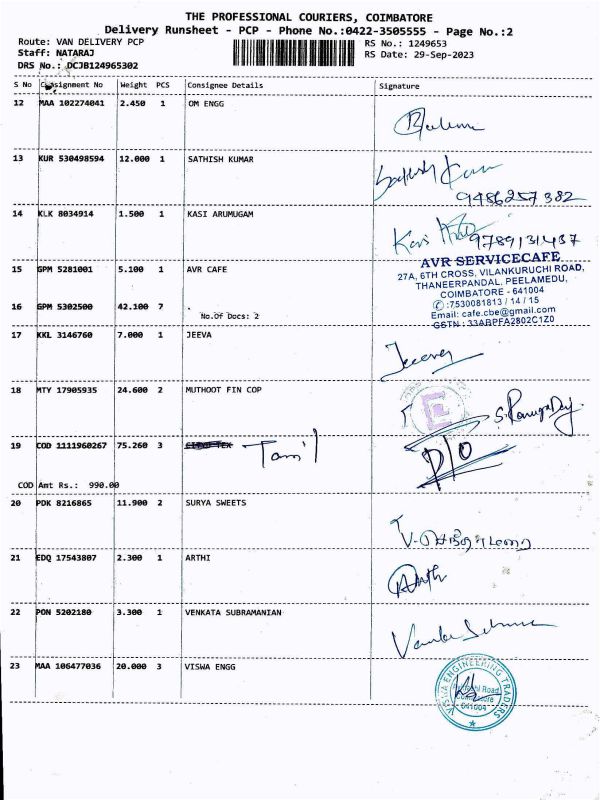 THE PROFESSIONAL COURIERS, COIMBATORE
Delivery Runsheet - PCP - Phone No.:0422-3505555 - Page No.:2
Route: VAN DELIVERY PCP
RS No.: 1249653
Staff: NATARAJ
RS Date: 29-Sep-2023
DRS No.: DCJB124965302
S No Consignment No Weight PCS Consignee Details Signature
12 MAA 102274041 2.450 1 OM ENGG
13 KUR 530498594 12.000 1 SATHISH KUMAR
Sathish Kumar
9486257382
14 KLK 8034914 1.500 1 KASI ARUMUGAM
9789131437
15 GPM 5281001 5.100 1 AVR CAFE
AVR SERVICECAFE
27A, 6TH CROSS, VILANKURUCHI ROAD,
THANEERPANDAL, PEELAMEDU,
COIMBATORE - 641004
✆:7530081813 / 14 / 15
Email: cafe.cbe@gmail.com
GSTN : 33ABPFA2802C1Z0
16 GPM 5302500 42.100 7
No.Of Docs: 2
17 KKL 3146760 7.000 1 JEEVA
Jeeva
18 MTY 17905935 24.600 2 MUTHOOT FIN COP
E
19 COD 1111960267 75.260 3 Tamil
D/O
COD Amt Rs.: 990.00
20 PDK 8216865 11.900 2 SURYA SWEETS
21 EDQ 17543807 2.300 1 ARTHI
Arth
22 PON 5202180 3.300 1 VENKATA SUBRAMANIAN
23 MAA 106477036 20.000 3 VISWA ENGG
VISWA ENGINEERING TRADERS
641004